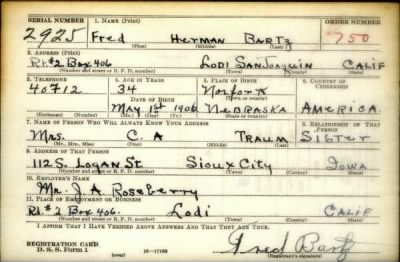 SERIAL NUMBER 1. NAME (Print) ORDER NUMBER
2925 Fred Herman Bartz 750
(First) (Middle) (Last)
2. ADDRESS (Print)
Rt.#2 Box 406 Lodi San Joaquin Calif
(Number and street or R. F. D. number) (Town) (County) (State)
3. TELEPHONE 4. AGE IN YEARS 5. PLACE OF BIRTH 6. COUNTRY OF CITIZENSHIP
40712 34 Norfork
DATE OF BIRTH (Town or county)
May 1st 1906 Nebraska America
(Exchange) (Number) (Mo.) (Day) (Yr.) (State or country)
7. NAME OF PERSON WHO WILL ALWAYS KNOW YOUR ADDRESS 8. RELATIONSHIP OF THAT PERSON
Mrs. C. A Traum Sister
(Mr., Mrs., Miss) (First) (Middle) (Last)
9. ADDRESS OF THAT PERSON
112 S. Logan St Sioux City Iowa
(Number and street or R. F. D. number) (Town) (County) (State)
10. EMPLOYER'S NAME
Mr. J. A. Roseberry
11. PLACE OF EMPLOYMENT OR BUSINESS
Rt.#2 Box 406. Lodi Calif
(Number and street or R. F. D. number) (Town) (County) (State)
I AFFIRM THAT I HAVE VERIFIED ABOVE ANSWERS AND THAT THEY ARE TRUE.
REGISTRATION CARD
D. S. S. Form 1 16—17105 Fred Bartz
(Registrant's signature)